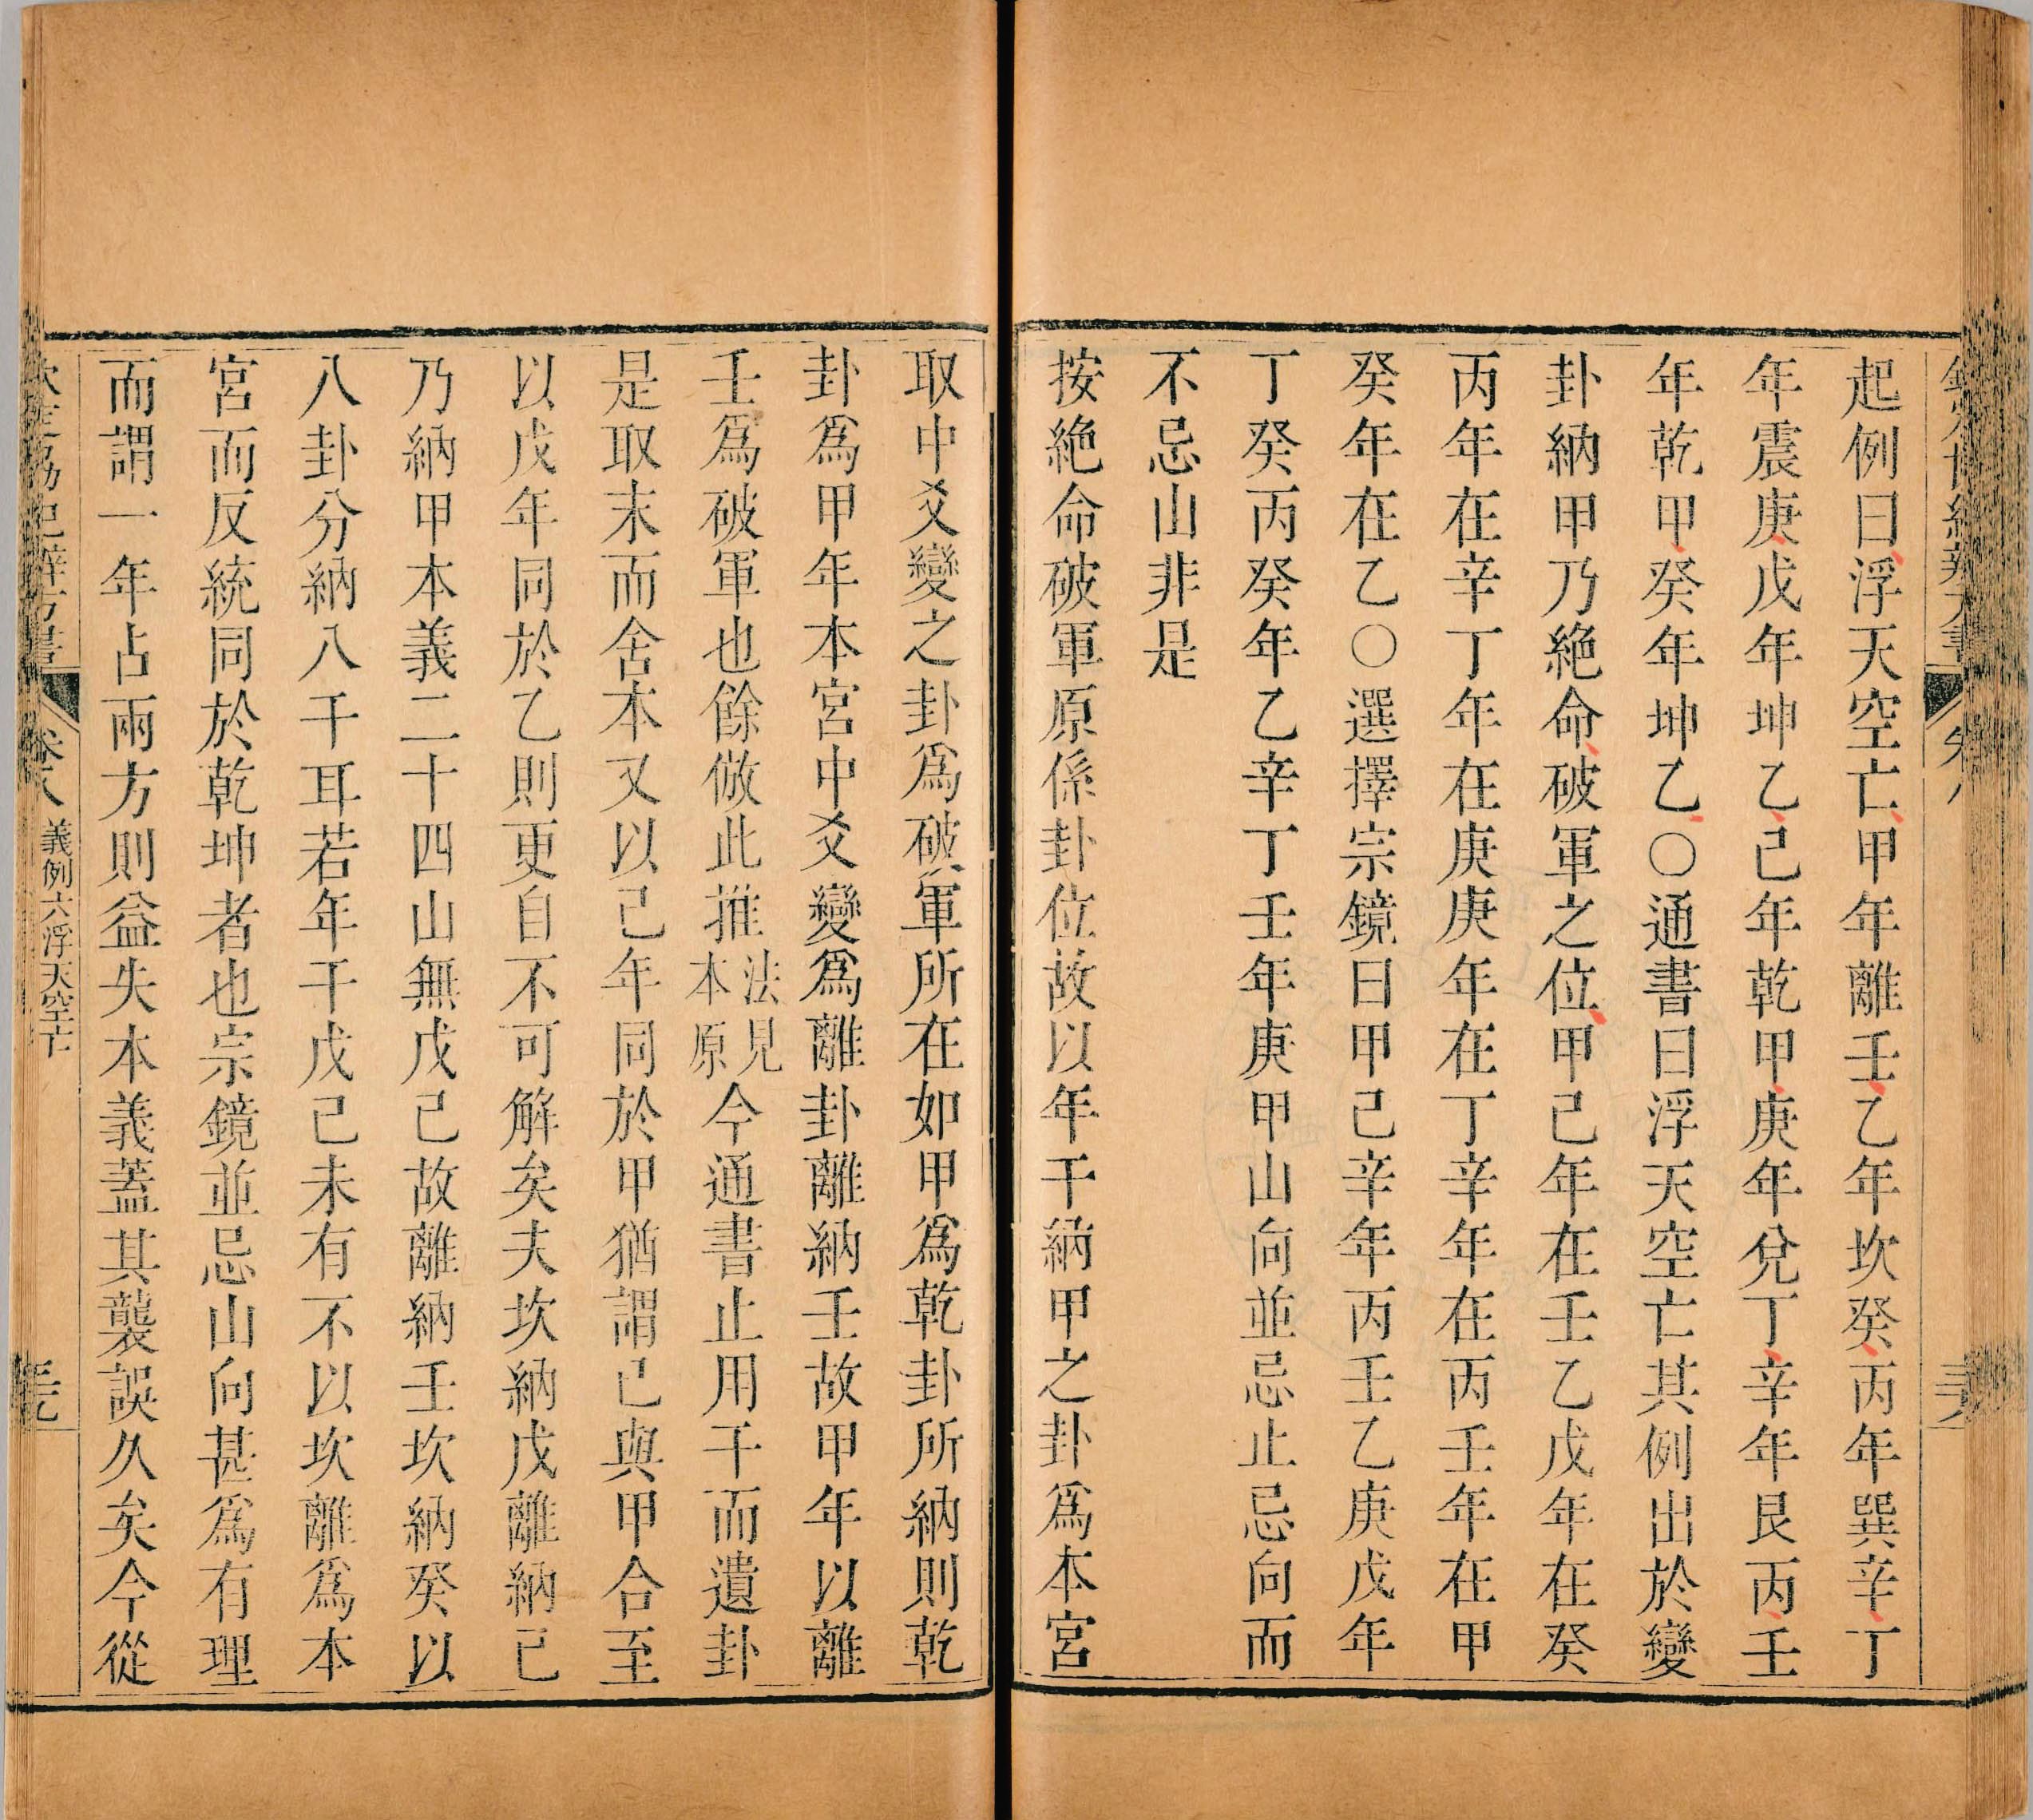 起例曰浮天空亡甲年離壬乙年坎癸丙年巽辛丁
年震庚戊年坤乙己年乾甲庚年兌丁辛年艮丙壬
年乾甲癸年坤乙○通書曰浮天空亡其例出於變
卦納甲乃絶命破軍之位甲己年在壬乙戊年在癸
丙年在辛丁年在庚庚年在丁辛年在丙壬年在甲
癸年在乙○選擇宗鏡曰甲己辛年丙壬乙庚戊年
丁癸丙癸年乙辛丁壬年庚甲山向並忌止忌向而
不忌山非是
按絶命破軍原係卦位故以年干納甲之卦爲本宮
取中爻變之卦爲破軍所在如甲爲乾卦所納則乾
卦爲甲年本宮中爻變爲離卦離納壬故甲年以離
壬爲破軍也餘倣此推法見本原今通書止用干而遺卦
是取末而舍本又以己年同於甲猶謂己與甲合至
以戊年同於乙則更自不可解矣夫坎納戊離納己
乃納甲本義二十四山無戊己故離納壬坎納癸以
八卦分納八干耳若年干戊己未有不以坎離爲本
宮而反統同於乾坤者也宗鏡並忌山向甚爲有理
而謂一年占兩方則益失本義蓋其襲誤久矣今從
義例六浮天空亡